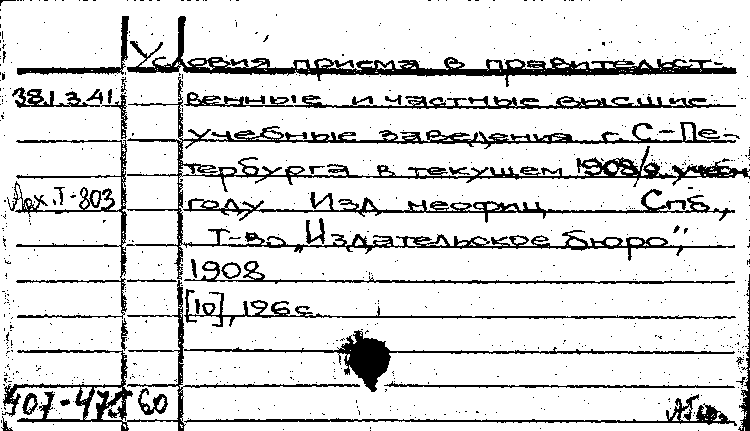 Условия приема в правительст-
38.1.3.41. венные и частные высшие
учебные заведения г. С-Пе-
тербурга в текущем 1908/9 учебн
Арх. Т-803 году Изд неофиц Спб.,
Т-во „Издательское бюро",
1908
[10], 196 с.
407-475 60